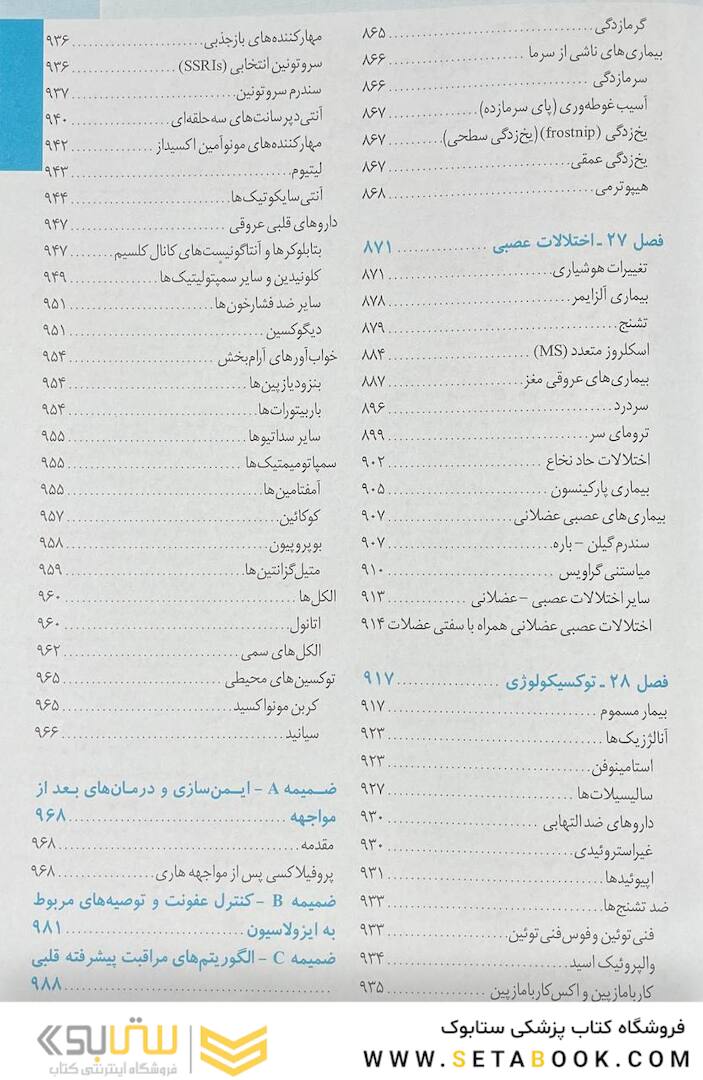 گرمازدگی ........ ۸۶۵
بیماری‌های ناشی از سرما ........ ۸۶۶
سرمازدگی ........ ۸۶۶
آسیب غوطه‌وری (پای سرمازده) ........ ۸۶۷
یخ‌زدگی (frostnip) (یخ‌زدگی سطحی) ........ ۸۶۷
یخ‌زدگی عمقی ........ ۸۶۷
هیپوترمی ........ ۸۶۸
فصل ۲۷ ـ اختلالات عصبی ........ ۸۷۱
تغییرات هوشیاری ........ ۸۷۱
بیماری آلزایمر ........ ۸۷۸
تشنج ........ ۸۷۹
اسکلروز متعدد (MS) ........ ۸۸۴
بیماری‌های عروقی مغز ........ ۸۸۷
سردرد ........ ۸۹۶
ترومای سر ........ ۸۹۹
اختلالات حاد نخاع ........ ۹۰۲
بیماری پارکینسون ........ ۹۰۵
بیماری‌های عصبی عضلانی ........ ۹۰۷
سندرم گیلن – باره ........ ۹۰۷
میاستنی گراویس ........ ۹۱۰
سایر اختلالات عصبی – عضلانی ........ ۹۱۳
اختلالات عصبی عضلانی همراه با سفتی عضلات ۹۱۴
فصل ۲۸ ـ توکسیکولوژی ........ ۹۱۷
بیمار مسموم ........ ۹۱۷
آنالژزیک‌ها ........ ۹۲۳
استامینوفن ........ ۹۲۳
سالیسیلات‌ها ........ ۹۲۷
داروهای ضد التهابی ........ ۹۳۰
غیراستروئیدی ........ ۹۳۰
اپیوئیدها ........ ۹۳۱
ضد تشنج‌ها ........ ۹۳۳
فنی‌توئین و فوس فنی‌توئین ........ ۹۳۳
والپروئیک اسید ........ ۹۳۴
کاربامازپین و اکس‌کاربامازپین ........ ۹۳۵
مهارکننده‌های بازجذبی ........ ۹۳۶
سروتونین انتخابی (SSRIs) ........ ۹۳۶
سندرم سروتونین ........ ۹۳۷
آنتی‌دپرسانت‌های سه‌حلقه‌ای ........ ۹۴۰
مهارکننده‌های مونوآمین اکسیداز ........ ۹۴۲
لیتیوم ........ ۹۴۳
آنتی‌سایکوتیک‌ها ........ ۹۴۴
داروهای قلبی عروقی ........ ۹۴۷
بتابلوکرها و آنتاگونیست‌های کانال کلسیم ........ ۹۴۷
کلونیدین و سایر سمپتولیتیک‌ها ........ ۹۴۹
سایر ضد فشارخون‌ها ........ ۹۵۱
دیگوکسین ........ ۹۵۱
خواب‌آورهای آرام‌بخش ........ ۹۵۴
بنزودیازپین‌ها ........ ۹۵۴
باربیتورات‌ها ........ ۹۵۴
سایر سداتیوها ........ ۹۵۵
سمپاتومیمتیک‌ها ........ ۹۵۵
آمفتامین‌ها ........ ۹۵۵
کوکائین ........ ۹۵۷
بوپروپیون ........ ۹۵۸
متیل‌گزانتین‌ها ........ ۹۵۹
الکل‌ها ........ ۹۶۰
اتانول ........ ۹۶۰
الکل‌های سمی ........ ۹۶۲
توکسین‌های محیطی ........ ۹۶۵
کربن مونواکسید ........ ۹۶۵
سیانید ........ ۹۶۶
ضمیمه A – ایمن‌سازی و درمان‌های بعد از
مواجهه ........ ۹۶۸
مقدمه ........ ۹۶۸
پروفیلاکسی پس از مواجهه هاری ........ ۹۶۸
ضمیمه B – کنترل عفونت و توصیه‌های مربوط
به ایزولاسیون ........ ۹۸۱
ضمیمه C – الگوریتم‌های مراقبت پیشرفته قلبی
........ ۹۸۸
فروشگاه کتاب پزشکی ستابوک
WWW.SETABOOK.COM
ستابوک
فروشگاه اینترنتی کتاب